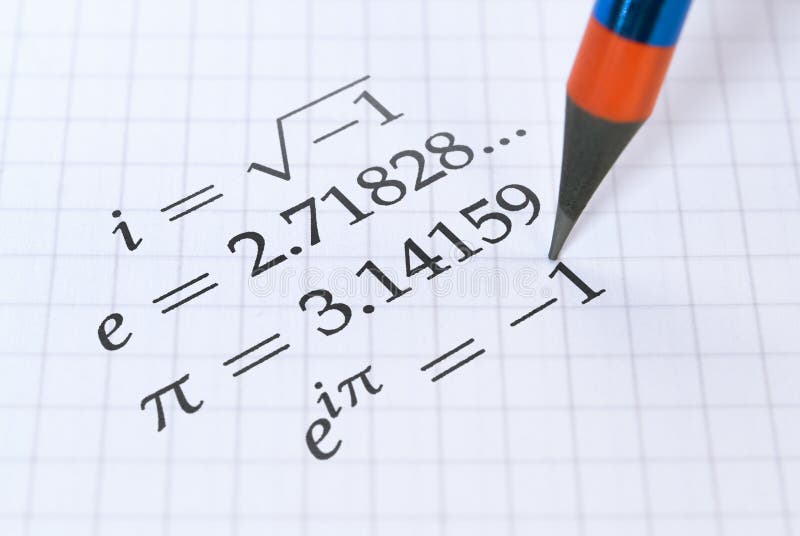 i = √-1
e = 2.71828...
π = 3.14159
e^{iπ} = -1